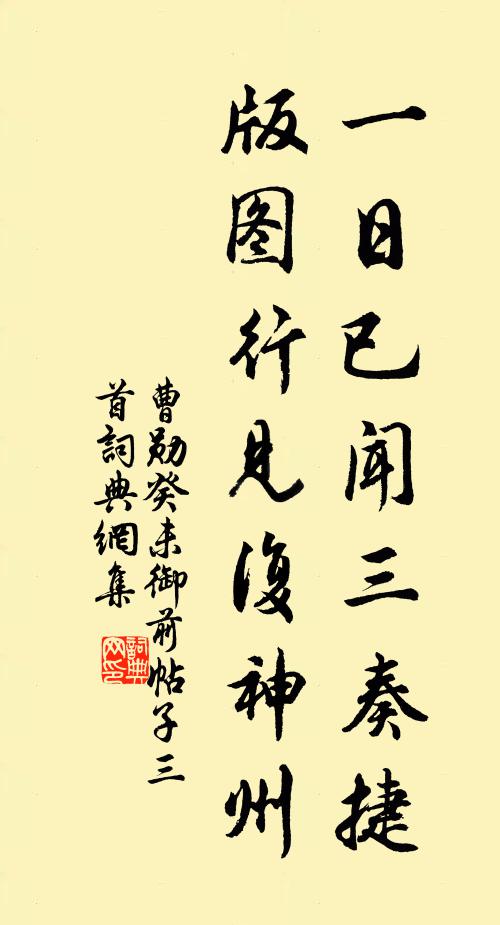 一日已闻三奏捷
版图行见復神州
曹勋癸未御前帖子三
首詞典網集
詞典
网印